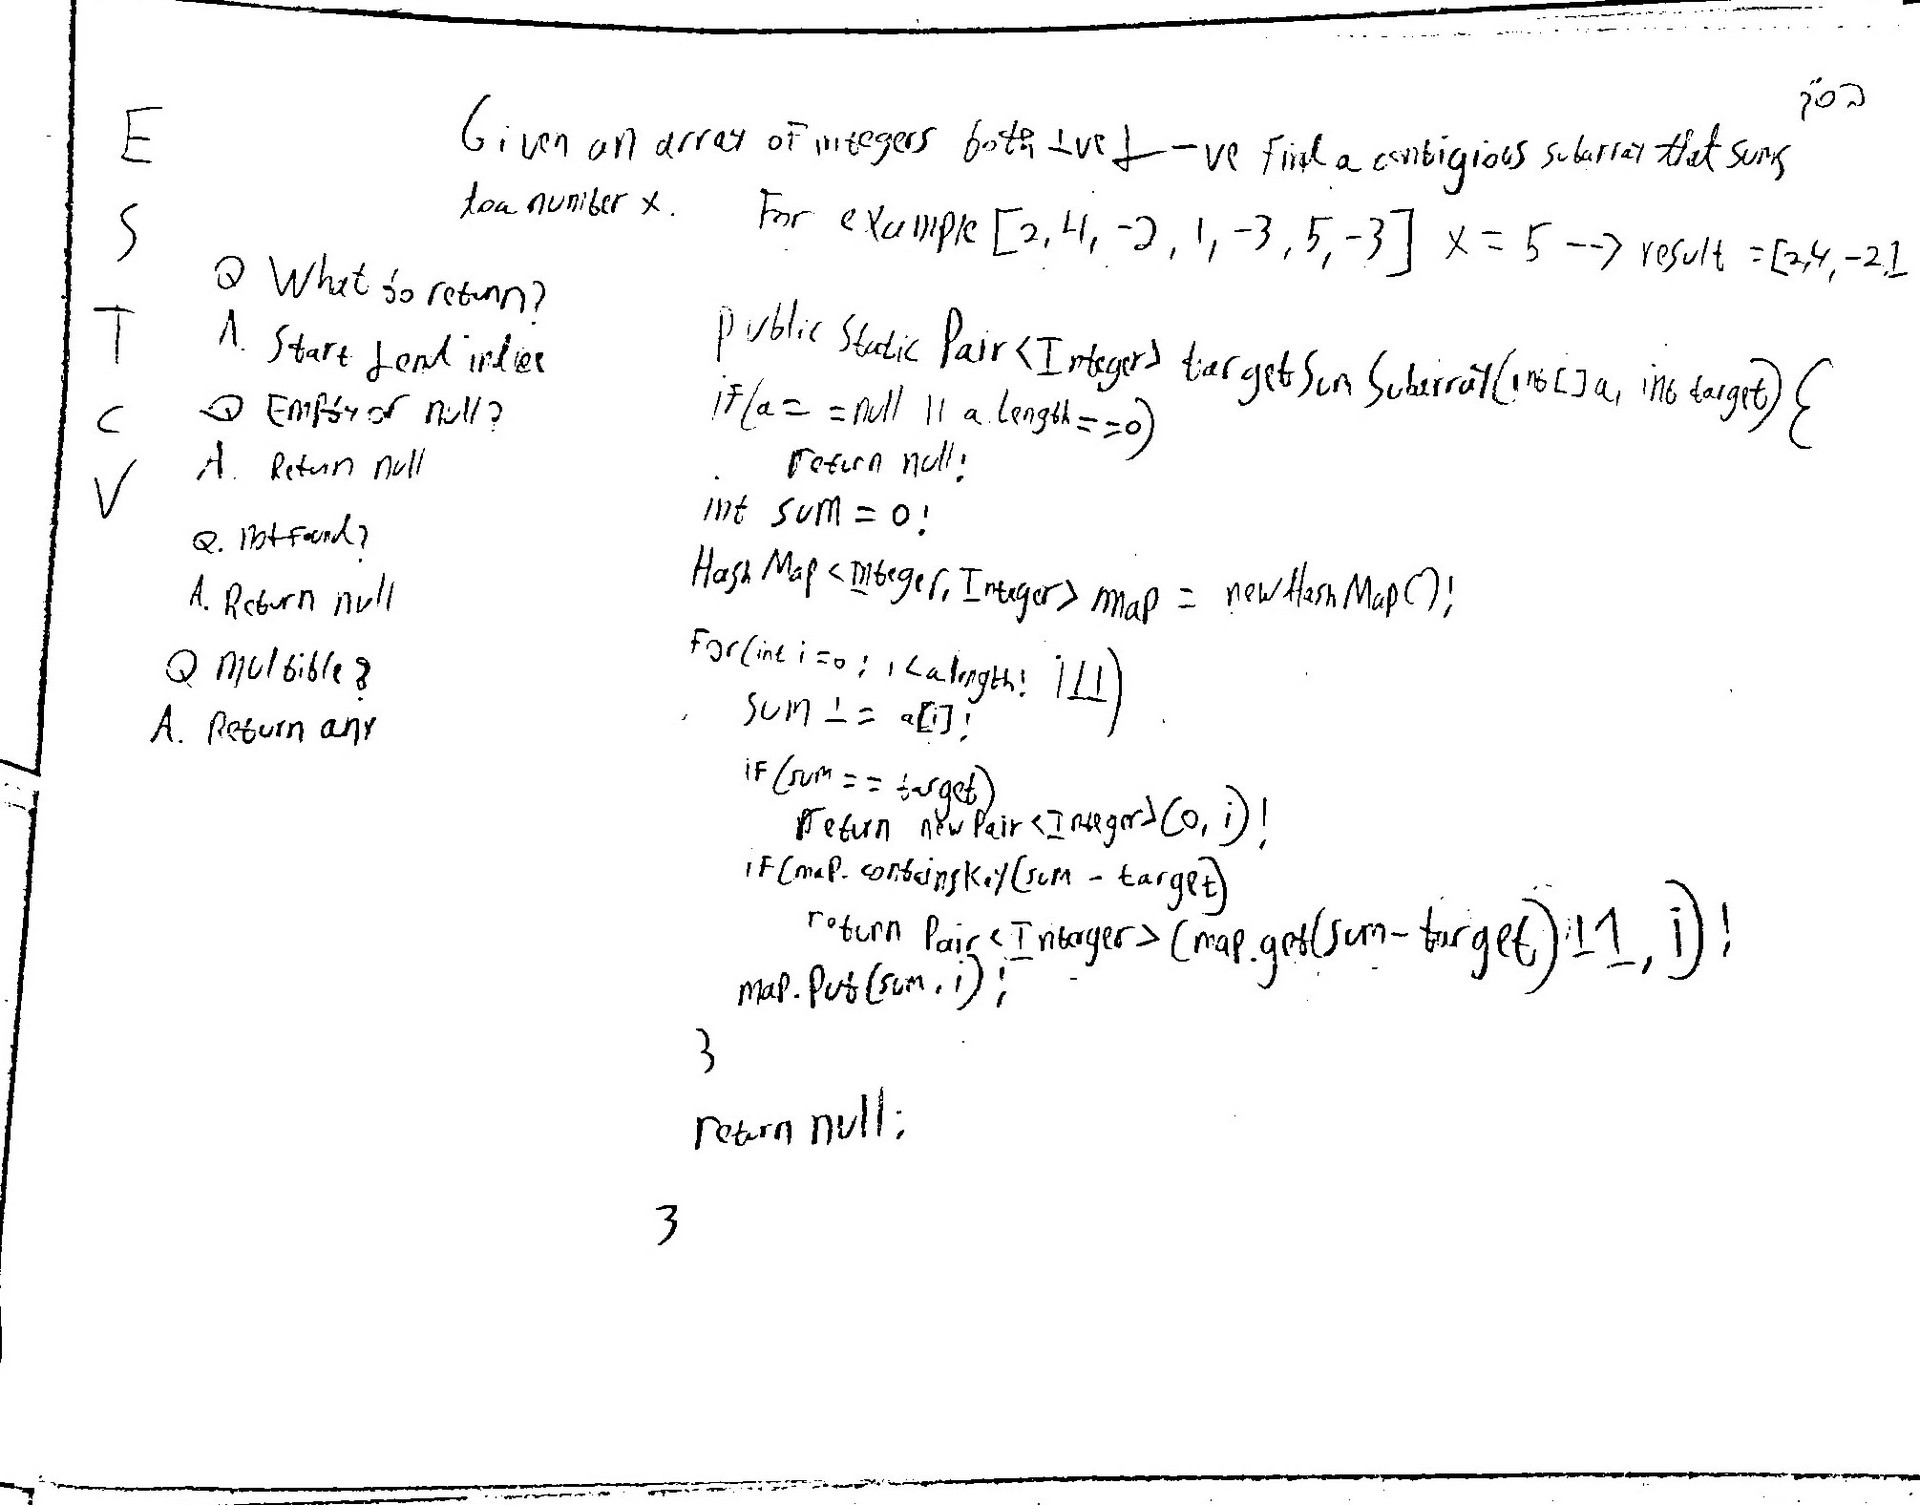 E
S
T
C
V
Given an array of integers both +ve + -ve Find a contigious subarray that sums
to a number x. For example [2, 4, -2, 1, -3, 5, -3] x = 5 --> result = [2,4, -2,1
Q What to return?
A. Start + end index
Q Empty or null?
A. Return null
Q. Not found?
A. Return null
Q Multible?
A. Return any
public static Pair<Integer> targetSumSubarray(int[] a, int target) {
if(a == null || a.length == 0)
return null;
int sum = 0;
HashMap<Integer, Integer> map = new HashMap();
For(int i=0; i<a.length; i++)
sum += a[i];
if(sum == target)
return new Pair<Integer>(0, i);
if(map.containsKey(sum - target)
return Pair<Integer>(map.get(sum-target)+1, i);
map.put(sum, i);
}
return null;
}